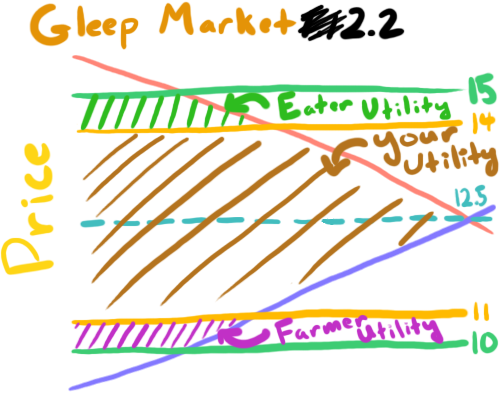 Gleep Market 2.2
15
Eater Utility
14
your
Utility
12.5
Price
11
Farmer Utility
10